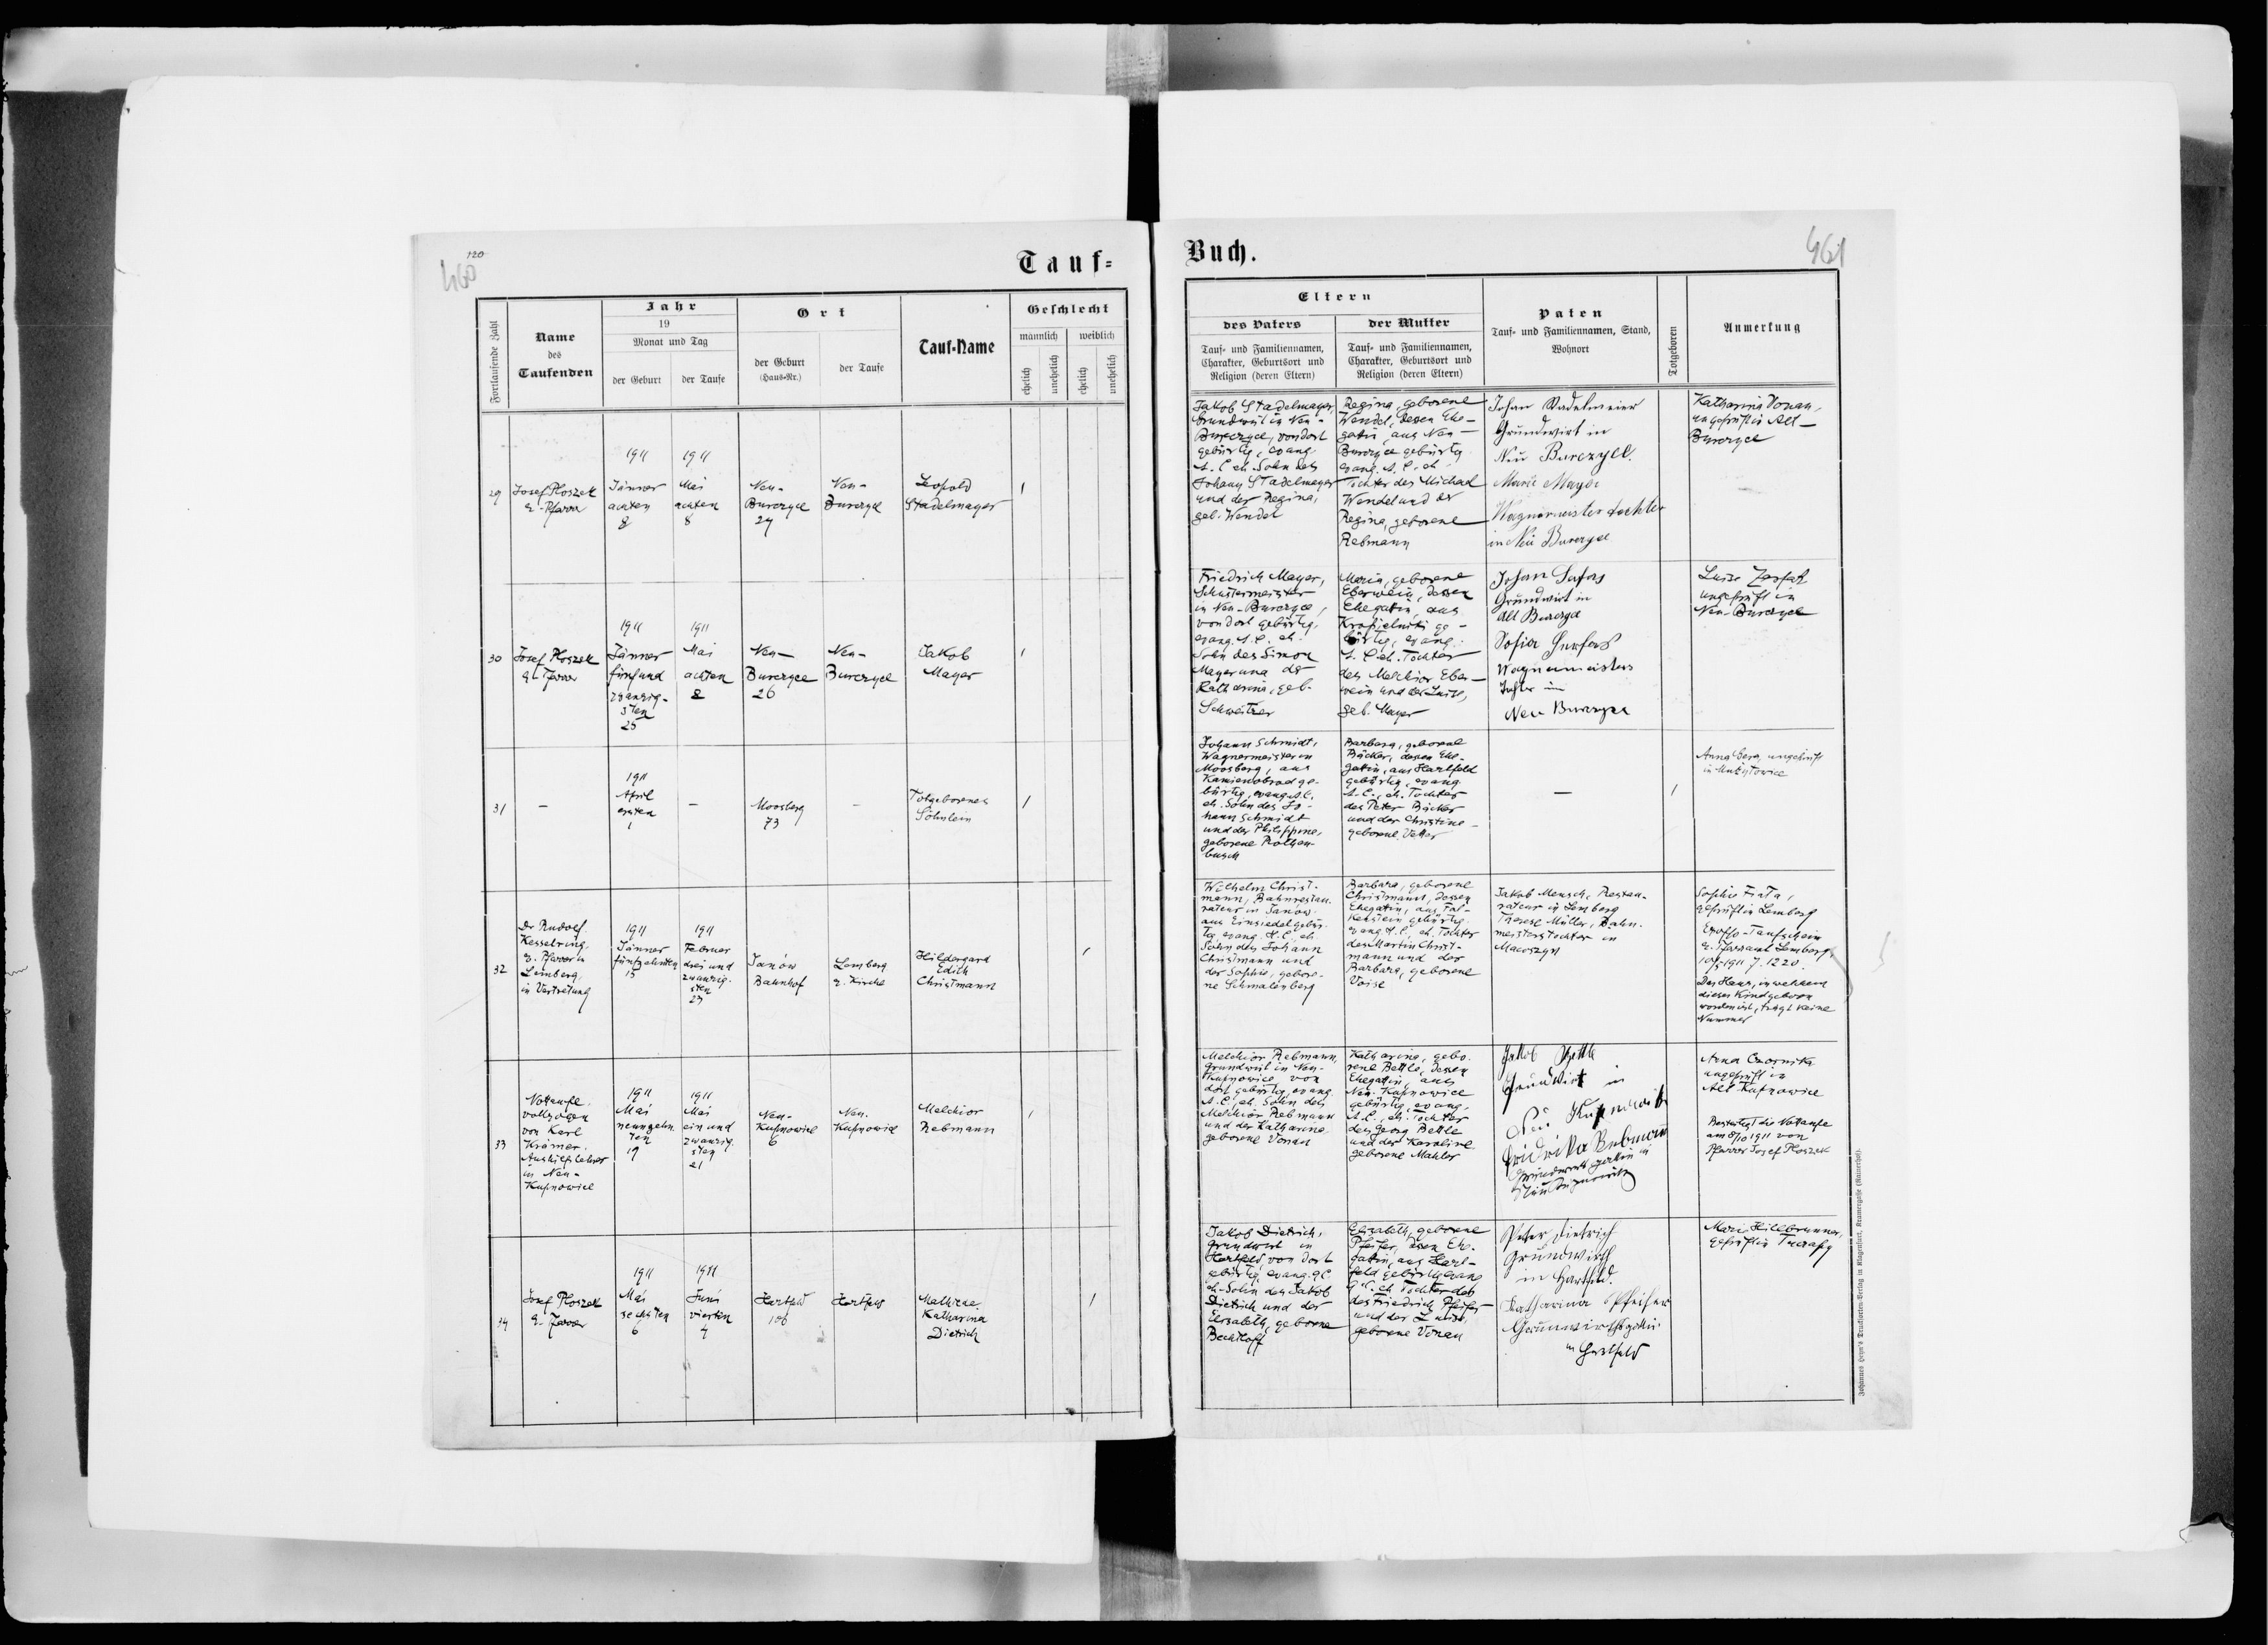 460
120
Tauf-
Fortlaufende Zahl
Name
des
Taufenden
Jahr
19
Monat und Tag
der Geburt
der Taufe
Ort
der Geburt
(Haus-Nr.)
der Taufe
Tauf-Name
Geschlecht
männlich
weiblich
ehelich
unehelich
ehelich
unehelich
29
Josef Ploszek
e. Pfarrer
1911
Jänner
achten
8
1911
Mai
achten
8
Neu-
Burczyce
24
Neu-
Burczyce
Leopold
Stadelmayer
1
30
Josef Ploszek
e. Pfarrer
1911
Jänner
fünfund
zwanzig-
sten
25
1911
Mai
achten
8
Neu-
Burczyce
26
Neu-
Burczyce
Jakob
Mayer
1
31
—
1911
April
ersten
1
—
Moosberg
73
—
Totgeborenes
Söhnlein
1
32
Dr Rudolf
Kesselring,
e. Pfarrer in
Lemberg,
in Vertretung
1911
Jänner
fünfzehnten
15
1911
Februar
drei und
zwanzig-
sten
23
Janów
Bahnhof
Lemberg
e. Kirche
Hildegard
Edith
Christmann
1
33
Nottaufe
vollzogen
von Karl
Krämer.
Aushilfslehrer
in Neu-
Kupnowice
1911
Mai
neunzehn
ten
19
1911
Mai
ein und
zwanzig
sten
21
Neu-
Kupnowice
6
Neu-
Kupnowice
Melchior
Rebmann
1
34
Josef Ploszek
e. Pfarrer
1911
Mai
sechsten
6
1911
Juni
vierten
4
Hartfeld
106
Hartfeld
Mathilde
Katharina
Dietrich
1
Buch.
461
Eltern
des Vaters
Tauf- und Familiennamen,
Charakter, Geburtsort und
Religion (deren Eltern)
der Mutter
Tauf- und Familiennamen,
Charakter, Geburtsort und
Religion (deren Eltern)
Paten
Tauf- und Familiennamen, Stand,
Wohnort
Totgeboren
Anmerkung
Jakob Stadelmayer,
Grundwirt in Neu-
Burczyce, von dort
gebürtig, evang.
A. C. eh. Sohn des
Johann Stadelmayer
und der Regina,
geb. Wendel
Regina, geborene
Wendel, dessen Ehe-
gatin, aus Neu-
Burczyce gebürtig
evang. A. C. eh.
Tochter des Michael
Wendel und der
Regina, geborene
Rebmann
Johan Stadelmeier
Grundwirt in
Neu Burczyce.
Marie Mayer
Wagnermeister tochter
in Neu Burczyce
Katharina Vonau,
ungeprüft in Alt-
Burczyce
Friedrich Mayer,
Schustermeister
in Neu-Burczyce,
von dort gebürtig,
evang. A. C. eh.
Sohn des Simon
Mayer und der
Katharina, geb.
Schweitzer
Maria, geborene
Eberwein, dessen
Ehegatin, aus
ge-
bürtig, evang.
A. C. eh. Tochter
des Melchior Eber-
wein und der Luise,
geb. Mayer
Johan
Grundwirt in
Alt Burczyce
Sofia
Wagnermeisters
Tochter in
Neu Burczyce
Luise
ungeprüft in
Neu-Burczyce
Johann Schmidt,
Wagnermeister in
Moosberg, aus
Kamienobrod ge-
bürtig, evang. A. C.
eh. Sohn des Jo-
hann Schmidt
und der Philippine,
geborene Rothen-
busch
Barbara, geborene
Bäcker, dessen Ehe-
gatin, aus Hartfeld
gebürtig, evang.
A. C., eh. Tochter
des Peter Bäcker
und der Christine
geborene Vetter
—
1
Anna Berg, ungeprüft
in
Wilhelm Christ-
mann, Bahnrestau-
rateur in Janów
aus Einsiedel gebür-
tig evang. H. C., eh.
Sohn des Johann
Christmann und
der Sophie, gebore-
ne Schmalenberg
Barbara, geborene
Christmann, dessen
Ehegatin, aus Fal-
kenstein gebürtig
evang. H. C., eh. Tochter
des Martin Christ-
mann und der
Barbara, geborene
Voise
Jakob Mensch, Restau-
rateur in Lemberg
Therese Müller, Bahn-
meisterstochter in
Sophie
geprüft in Lemberg
Exoffo-Taufschein
e. Pfarramt Lemberg,
10/5 1911 Z. 1220.
Das Haus, in welchem
dieses Kind geboren
worden ist, trägt keine
Nummer
Melchior Rebmann,
Grundwirt in Neu-
Kupnowice von
dort gebürtig, evang.
A. C., eh. Sohn des
Melchior Rebmann
und der Katharina
geborene Vonau
Katharina, gebo-
rene Bettle, dessen
Ehegattin, aus
Neu-Kupnowice
gebürtig, evang.
A. C., eh. Tochter
des Georg Bettle
und der Karoline
geborene Mahler
Jakob Bettle
Grundwirt in
Neu Kupnowice
Fridrika Rebmann
Grundwirts gattin in
Neu Kupnowice
Anna Czornika
ungeprüft in
Alt-Kupnowice
Bestätigt die Nottaufe
am 8/10 1911 von
Pfarrer Josef Ploszek
Jakob Dietrich,
Grundwirt in
Hartfeld, von dort
gebürtig, evang. A C
eh. Sohn des Jakob
Dietrich und der
Elisabeth, geborene
Bechtloff
Elisabeth, geborene
Pfeifer, dessen Ehe-
gatin, aus Hart-
feld gebürtig evang
A. C. eh Tochter des
des Friedrich Pfeifer
und der Luise,
geborene Vonau
Peter Dietrich
Grundwirth
in Hartfeld.
Katharina Pfeifer
Grunwirthsgatin
in Hartfeld
Marie Hillbrunner,
geprüft in
Johannes Heyn's Drucksorten-Verlag in Klagenfurt, Kramergasse (Kaunerhof).